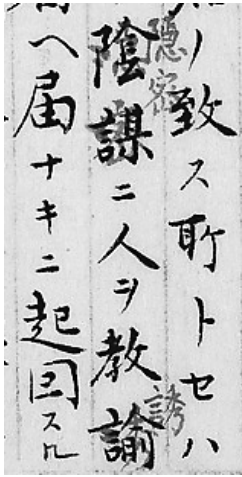 ノ致ス所トセハ
隠密
陰謀ニ人ヲ教諭
誘
ヘ届ナキニ起因スル